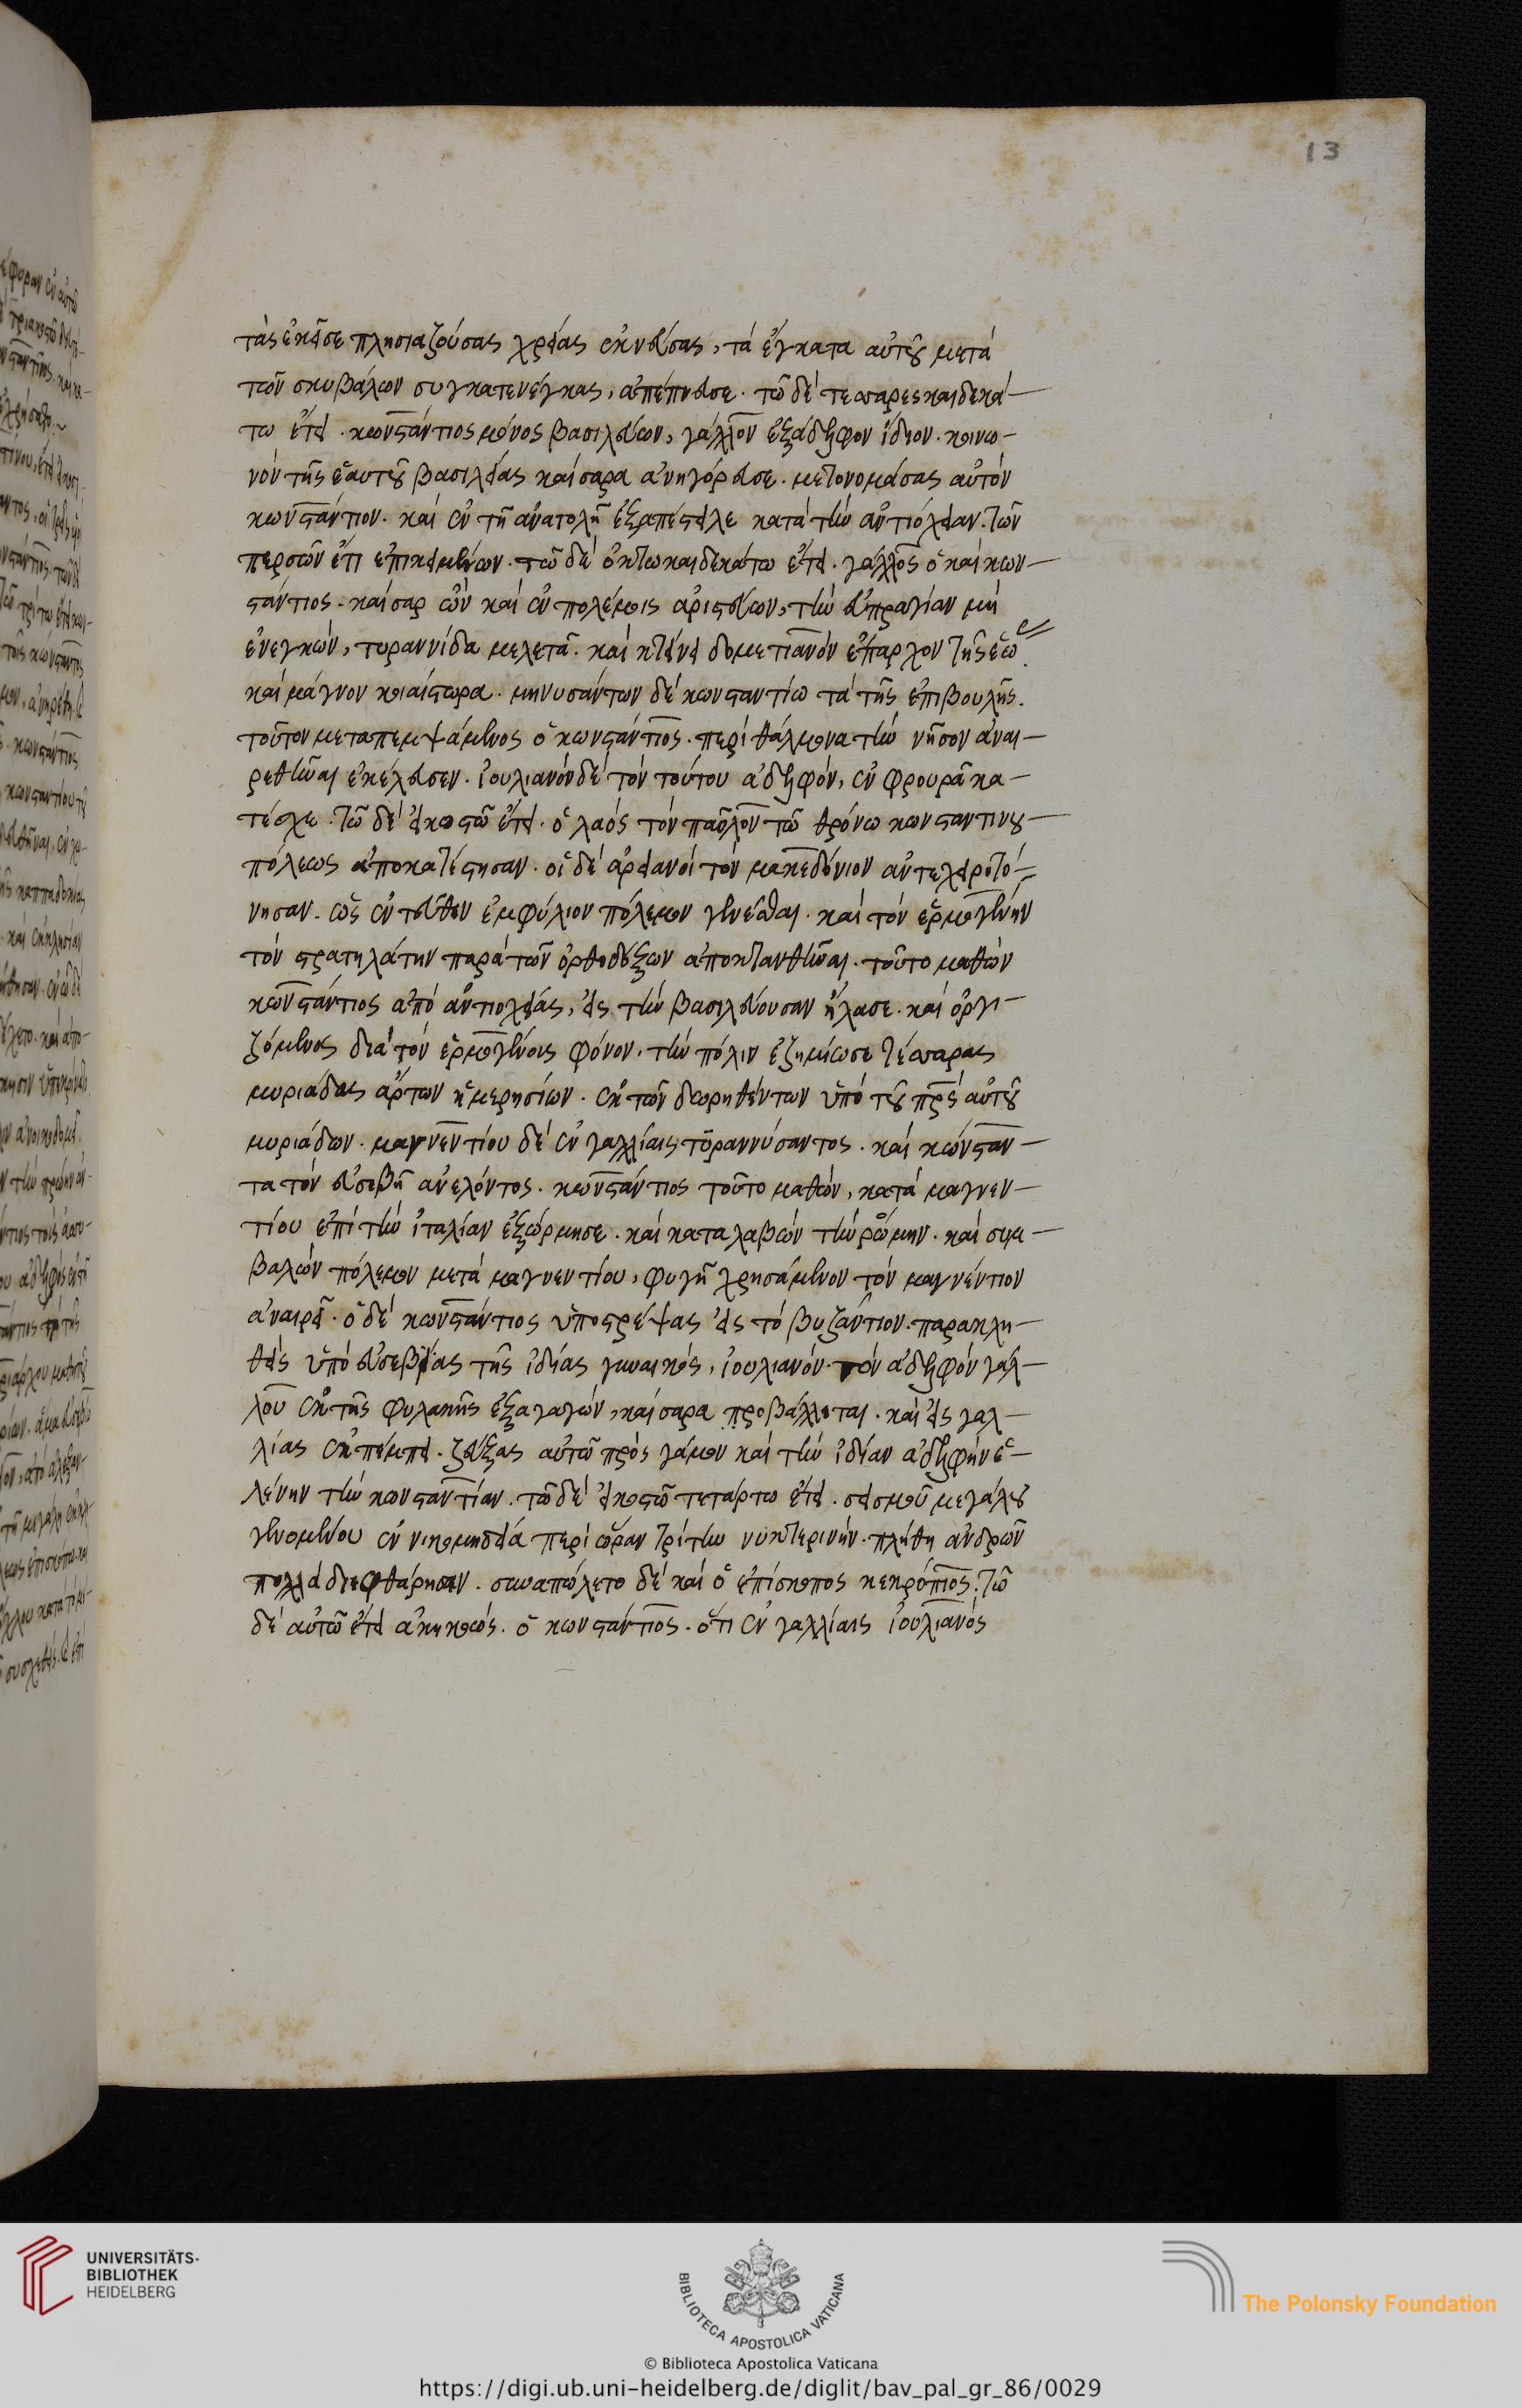 13
τὰς ἐκεῖσε πλησιαζούσας χρείας ἐκνεύσας, τὰ ἔγκατα αὐτοῦ μετὰ
τῶν σκυβάλων συγκατενέγκας, ἀπέπνευσε. τῶ δὲ τεσσαρεσκαιδεκά-
τω ἔτει. κωνστάντιος μόνος βασιλεύων, γάλλον ἐξάδελφον ἴδιον. κοινω-
νὸν τῆς ἑαυτοῦ βασιλείας καίσαρα ἀνηγόρευσε. μετονομάσας αὐτὸν
κωνστάντιον. καὶ ἐν τῆ ἀνατολῆ ἐξαπέστειλε κατὰ τὴν ἀντιόχειαν. τῶν
περσῶν ἔτι ἐπικειμένων. τῶ δὲ ὀκτωκαιδεκάτω ἔτει. γάλλος ὁ καὶ κων-
στάντιος. καίσαρ ὢν καὶ ἐν πολέμοις ἀριστεύων, τὴν εὐπραγίαν μὴ
ἐνεγκών, τυραννίδα μελετᾶ. καὶ κτείνει δομετιανὸν ἔπαρχον τῆς ἑώ
καὶ μάγνον κοιαίστωρα. μηνυσάντων δὲ κωνσταντίω τὰ τῆς ἐπιβουλῆς.
τοῦτον μεταπεμψάμενος ὁ κωνστάντιος. περὶ θάλμονα τὴν νῆσον ἀναι-
ρεθῆναι ἐκέλευσεν. ἰουλιανὸν δὲ τὸν τούτου ἀδελφόν, ἐν φρουρᾶ κα-
τέσχε. τῶ δὲ εἰκοστῶ ἔτει. ὁ λαὸς τὸν παῦλον τῶ θρόνω κωνσταντινου
πόλεως ἀποκατέστησαν. οἱ δὲ ἀρειανοὶ τὸν μακεδόνιον ἀντεχειροτό-
νησαν. ὡς ἐντεῦθεν ἐμφύλιον πόλεμον γενέσθαι. καὶ τὸν ἑρμογένην
τὸν στρατηλάτην παρὰ τῶν ὀρθοδόξων ἀποκτανθῆναι. τοῦτο μαθὼν
κωνστάντιος ἀπὸ ἀντιοχείας, εἰς τὴν βασιλεύουσαν ἤλασε. καὶ ὀργι-
ζόμενος διὰ τὸν ἑρμογένους φόνον. τὴν πόλιν ἐζημίωσε τέσσαρας
μυριάδας ἄρτων ἡμερησίων. ἐκ τῶν δωρηθέντων ὑπὸ τοῦ πρς αὐτοῦ
μυριάδων. μαγνεντίου δὲ ἐν γαλλίαις τυραννύσαντος. καὶ κώνσταν-
τα τὸν εὐσεβῆ ἀνελόντος. κωνστάντιος τοῦτο μαθών, κατὰ μαγνεν-
τίου ἐπὶ τὴν ἰταλίαν ἐξώρμησε. καὶ καταλαβὼν τὴν ῥώμην. καὶ συμ-
βαλὼν πόλεμον μετὰ μαγνεντίου, φυγῆ χρησάμενον τὸν μαγνέντιον
ἀναιρεῖ. ὁ δὲ κωνστάντιος ὑποστρέψας εἰς τὸ βυζάντιον. παρακλη-
θεὶς ὑπὸ εὐσεβείας τῆς ἰδίας γυναικός, ἰουλιανὸν τὸν ἀδελφὸν γάλ-
λου ἐκ τῆς φυλακῆς ἐξαγαγών, καίσαρα προβάλλεται. καὶ εἰς γαλ-
λίας ἐκπέμπει. ζεύξας αὐτῶ πρὸς γάμον καὶ τὴν ἰδίαν ἀδελφὴν ἑ-
λένην τὴν κωνσταντίαν. τῶ δὲ εἰκοστῶ τετάρτω ἔτει. σεισμοῦ μεγάλου
γενομένου ἐν νικομηδεία περὶ ὥραν τρίτην νυκτερινήν. πλήθη ἀνδρῶν
πολλὰ διεφθάρησαν. συναπώλετο δὲ καὶ ὁ ἐπίσκοπος κεκρόπιος. τῶ
δὲ αὐτῶ ἔτει ἀκηκοώς. ὁ κωνστάντιος. ὅτι ἐν γαλλίαις ἰουλιανὸς
UNIVERSITÄTS-
BIBLIOTHEK
HEIDELBERG
BIBLIOTECA APOSTOLICA VATICANA
The Polonsky Foundation
© Biblioteca Apostolica Vaticana
https://digi.ub.uni-heidelberg.de/diglit/bav_pal_gr_86/0029